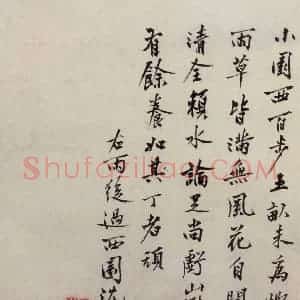 小園西百步三畝未為
雨草皆滿無風花自開
清全賴水論足尚
有餘養如其丁者頑
右雨後過西園
Shufazilian.COM